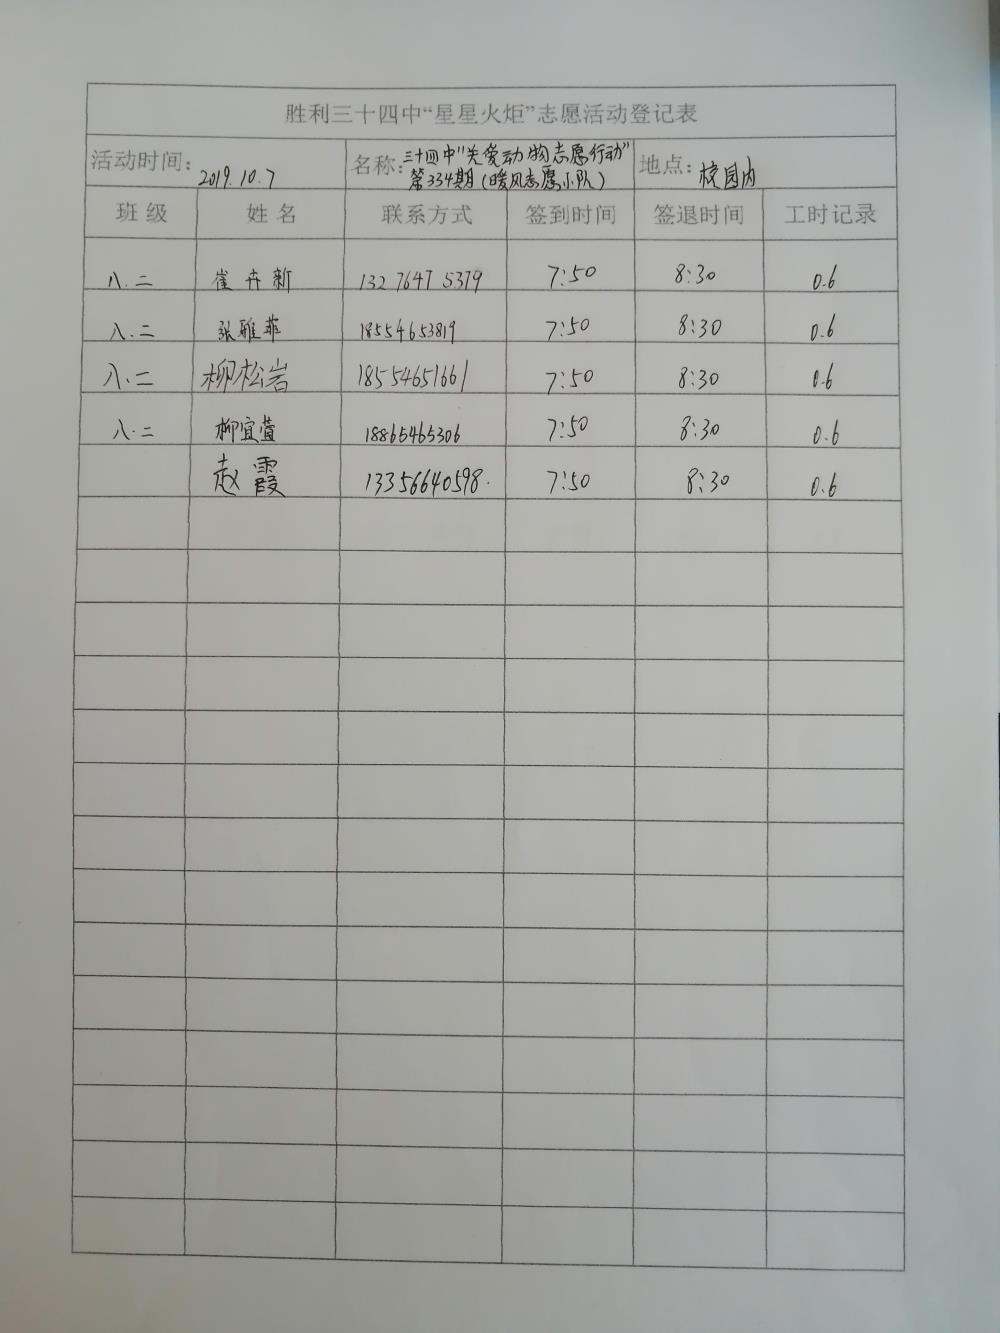 胜利三十四中“星星火炬”志愿活动登记表
活动时间: 2019.10.7 名称: 三十四中“关爱动物志愿行动” 第334期(暖风志愿小队) 地点: 校园内
班级 姓名 联系方式 签到时间 签退时间 工时记录
八.二 崔卉新 132 7647 5379 7:50 8:30 0.6
八.二 张雅菲 18554653819 7:50 8:30 0.6
八.二 柳松岩 18554651661 7:50 8:30 0.6
八.二 柳宜萱 18865465306 7:50 8:30 0.6
赵霞 13356640598. 7:50 8:30 0.6